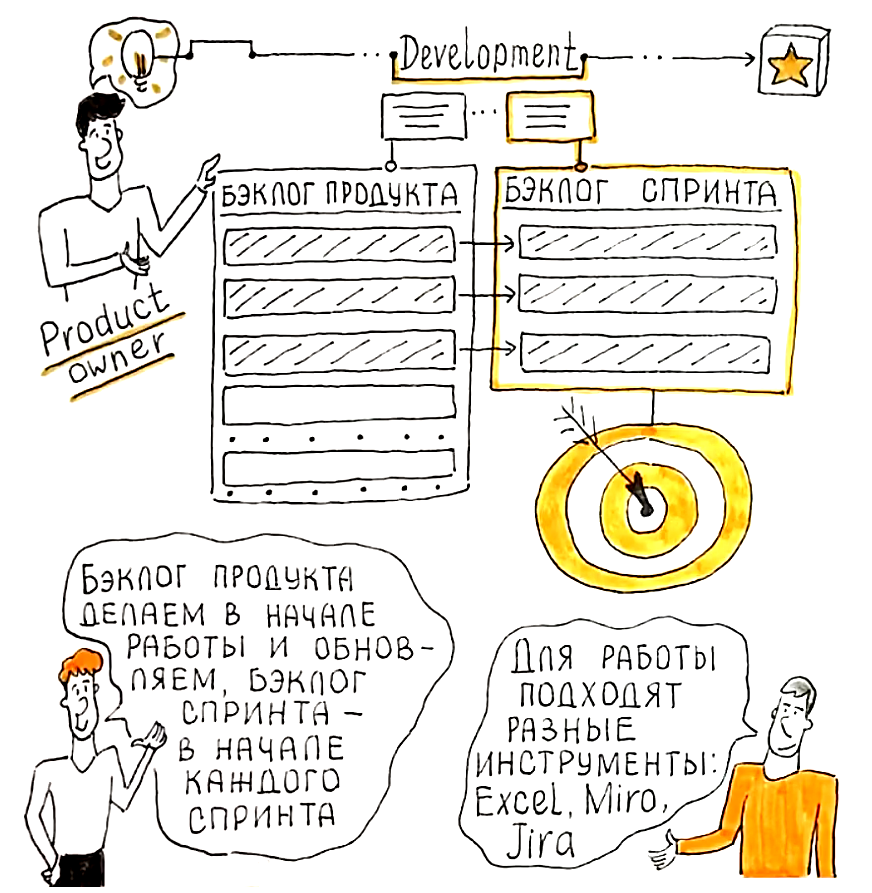 Development
БЭКЛОГ ПРОДУКТА
БЭКЛОГ СПРИНТА
Product
owner
БЭКЛОГ ПРОДУКТА
ДЕЛАЕМ В НАЧАЛЕ
РАБОТЫ И ОБНОВ-
ЛЯЕМ, БЭКЛОГ
СПРИНТА –
В НАЧАЛЕ
КАЖДОГО
СПРИНТА
ДЛЯ РАБОТЫ
ПОДХОДЯТ
РАЗНЫЕ
ИНСТРУМЕНТЫ:
Excel, Miro,
Jira